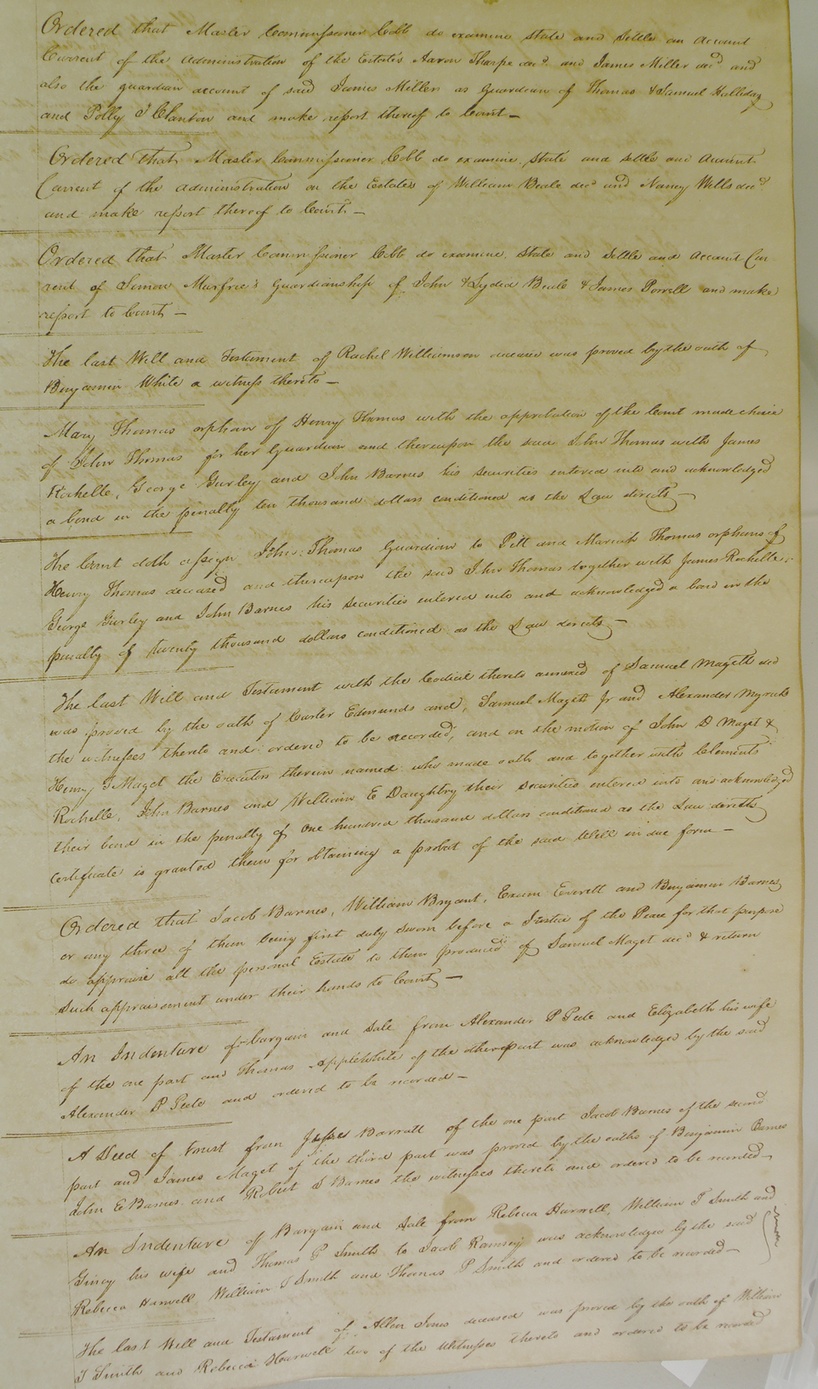 Ordered that Master Commissioner Cobb do examine state and settle an account
Current of the administration of the Estates Aaron Tharpe decd and James Miller decd and
also the guardian account of said James Miller as Guardian of Thomas & Samuel Halliday
and Polly T Clanton and make report thereof to Court—
Ordered that Master Commissioner Cobb do examine State and settle an Account
Current of the administration on the Estates of William Beale decd and Nancy Wills decd
and make report thereof to Court—
Ordered that Master Commissioner Cobb do examine State and Settle and Account Cur
rent of Simon Murfree's Guardianship of John & Lydia Beale & James Powell and make
report to Court—
The last Will and Testament of Rachel Williamson was proved by the oath of
Benjamin White a witness thereto—
Mary Thomas orphan of Henry Thomas with the approbation of the Court made choice
of John Thomas for her Guardian and thereupon the said John Thomas with James
Rochelle, George Gurley and John Barnes his securities entered into and acknowledged
a bond in the penalty ten thousand dollars conditioned as the Law directs—
The Court doth assign John Thomas Guardian to Pitt and Mariah Thomas orphans of
Henry Thomas deceased and thereupon the said John Thomas together with James Rochelle
George Gurley and John Barnes his securities entered into and acknowledged a bond in the
penalty of twenty thousand dollars conditioned as the Law directs—
The last Will and Testament with the Codicil thereto annexed of Samuel Magett decd
was proved by the oath of Carter Edmunds and, Samuel Magett Jr and Alexander Myrick
the witnesses thereto and ordered to be recorded, and on the motion of John D Maget &
Henry T Maget the Executors therein named who made oath and together with Clements
Rochelle, John Barnes and William E Daughtry their securities entered into and acknowledged
their bond in the penalty of one hundred thousand dollars conditioned as the Law directs
Certificate is granted them for obtaining a probat of the said Will in due form—
Ordered that Jacob Barnes, William Bryant, Exum Everett and Benjamin Barnes
or any three of them being first duly sworn before a Justice of the Peace for that purpose
do appraise all the personal Estate to them produced of Samuel Maget decd & return
Such appraisement under their hands to Court—
An Indenture of bargain and sale from Alexander P Peete and Elizabeth his wife
of the one part and Thomas Applewhite of the other part was acknowledged by the said
Alexander P Peete and ordered to be recorded—
A Deed of trust from Jesse Barrott of the one part Jacob Barnes of the second
part and James Maget of the third part was proved by the oaths of Benjamin Barnes
John E Barnes and Robert S Barnes the witnesses thereto and ordered to be recorded—
An Indenture of Bargain and Sale from Rebecca Harwell, William T Smith and
his wife and Thomas P Smith to Jacob Ramsey was acknowledged by the said
Rebecca Harwell William T Smith and Thomas P Smith and ordered to be recorded—
The last Will and Testament of Allen Jones deceased was proved by the oath of William
T Smith and Rebecca Harwell two of the Witnesses thereto and ordered to be recorded